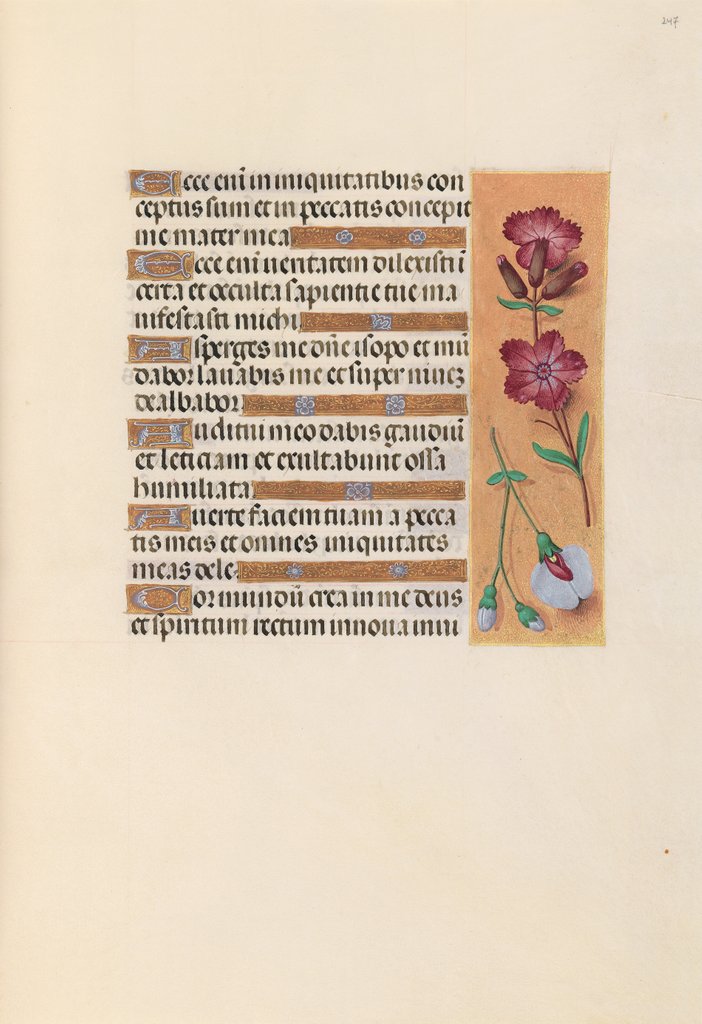 247
Ecce eni in iniquitatibus con
ceptus sum et in peccatis concepit
me mater mea
Ecce eni ueritatem dilexisti i
certa et occulta sapientie tue ma
nifestasti michi
Asperges me dñe isopo et mū
dabor lauabis me et super niuez
dealbabor
Auditui meo dabis gaudiū
et leticiam et exultabunt ossa
humiliata
Auerte faciem tuam a pecca
tis meis et omnes iniquitates
meas dele
Cor mundū crea in me deus
et spiritum rectum innoua in ui